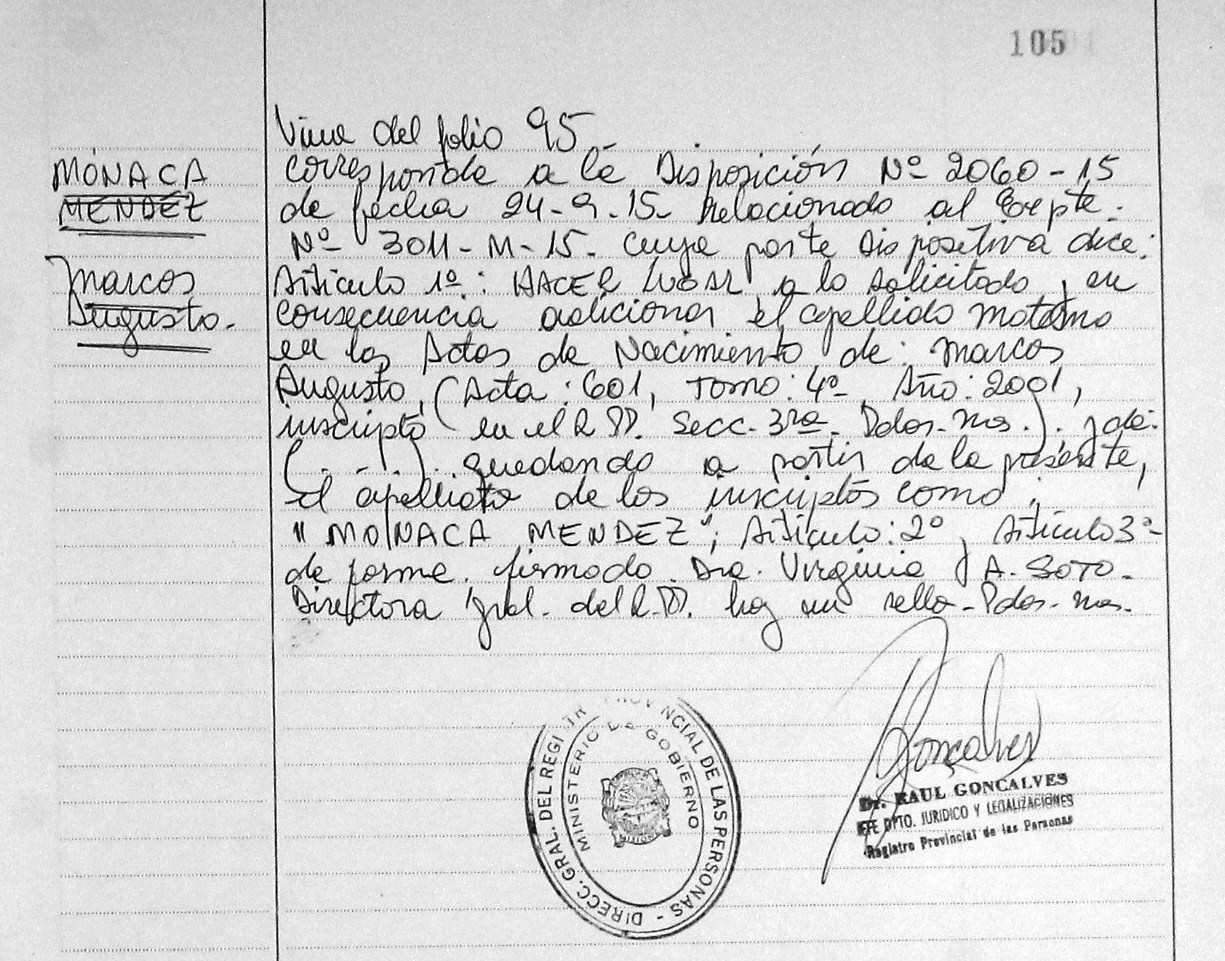 105
MÓNACA
MENDEZ
Marcos
Augusto.
Viene del folio 95
corresponde a la Disposición Nº 2060-15
de fecha 24-9-15- Relacionado al Expte.
Nº 3011-M-15- cuya parte Dispositiva dice:
Artículo 1º: HACER LUGAR a lo solicitado, en
consecuencia adicionar el apellido materno
en las Actas de Nacimiento de: Marcos
Augusto, (Acta: 601, Tomo: 4º, Año: 2001,
inscripto en el R.P.P. Secc. 3ra. Pdas-Mnes.). y de:
(. - . -). quedando a partir de la presente,
el apellido de los inscriptos como:
"MONACA MENDEZ"; Artículo: 2º, Artículo 3º
de forma. firmado. Dra. Virginia A. SOTO.
Directora Gral. del R.P.P. hay un sello-
DIRECC. GRAL. DEL REGISTRO PROVINCIAL DE LAS PERSONAS -
MINISTERIO DE GOBIERNO
Goncalves
Dr. RAUL GONCALVES
JEFE DPTO. JURIDICO Y LEGALIZACIONES
Registro Provincial de las Personas